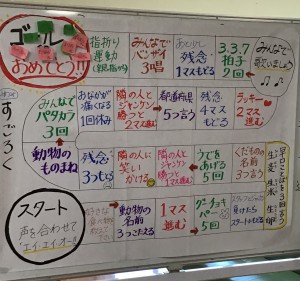 ゴール
おめでとう!!
指折り
運動
みんなで
バンザイ
3唱
残念
1マスもどる
3.3.7
拍子
2回
みんなで
歌いましょう
みんなで
パタカラ
3回
あなが
痛くなる
1回休み
隣の人と
ジャンケン
勝つと
2マス進む
都道府県
5つ言う
残念
4マス
もどる
ラッキー
2マス
進む
動物の
ものまね
残念
3つもどる
隣の人に
笑い
かける
隣の人と
ジャンケン
勝つと
2マス進む
うでを
あげる
5回
くだもの
名前
3つ言う
早口ことばを3回言う
生麦 生米 生卵
スタート
声を合わせて
「エイ・エイ・オー!!」
好きな
動物の
名前
3つこたえる
1マス
進む
グーチョキ
パー
5回
スタッフとジャンケン
負けたら
スタートにもどる
すごろく